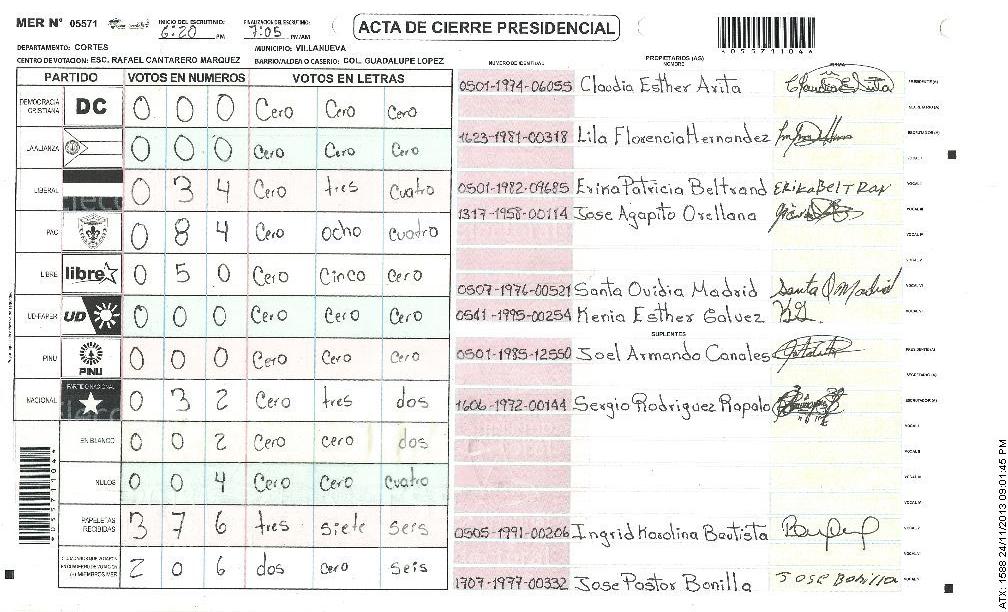 MER N° 05571
INICIO DEL ESCRUTINIO: 6:20 PM
FINALIZACION DEL ESCRUTINIO: 7:05 PM/AM
ACTA DE CIERRE PRESIDENCIAL
055711044
DEPARTAMENTO: CORTES
MUNICIPIO: VILLANUEVA
CENTRO DE VOTACION: ESC. RAFAEL CANTARERO MARQUEZ
BARRIO/ALDEA O CASERIO: COL. GUADALUPE LOPEZ
PARTIDO VOTOS EN NUMEROS VOTOS EN LETRAS
DEMOCRACIA CRISTIANA DC 0 0 0 Cero Cero Cero
LA ALIANZA 0 0 0 Cero Cero Cero
LIBERAL 0 3 4 Cero tres Cuatro
PAC 0 8 4 Cero ocho cuadro
LIBRE libre 0 5 0 Cero Cinco Cero
UD-FAPER UD 0 0 0 Cero Cero Cero
PINU PINU 0 0 0 Cero Cero Cero
NACIONAL PARTIDO NACIONAL 0 3 2 Cero tres dos
EN BLANCO 0 0 2 Cero cero dos
NULOS 0 0 4 Cero Cero Cuatro
PAPELETAS RECIBIDAS 3 7 6 tres siete seis
2 0 6 dos cero seis
055711044
NUMERO DE IDENTIDAD
PROPIETARIOS (AS)
NOMBRE
FIRMA
0501-1974-06055 Claudia Esther Arita PRESIDENTE(A)
SECRETARIO(A)
1623-1981-00318 Lila Florencia Hernandez ESCRUTADOR(A)
0501-1982-09685 Erina Patricia Beltrand ERIKA BELTRAN
1317-1958-00114 Jose Agapito Orellana
0507-1976-00521 Santa Ovidia Madrid Santa O Madrid
0541-1995-00254 Kenia Esther Galvez
SUPLENTES
0501-1985-12550 Joel Armando Canales PRESIDENTE(A)
SECRETARIO(A)
1606-1972-00144 Sergio Rodriguez Rapalo ESCRUTADOR(A)
0505-1991-00206 Ingrid Karolina Bautista
1707-1977-00332 Jose Pastor Bonilla JOSE Bonilla
ATX: 1588 24/11/2013 09:01:45 PM